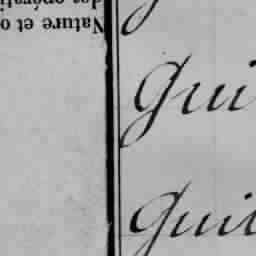 Nature et o
des opérati
Gui
Guil